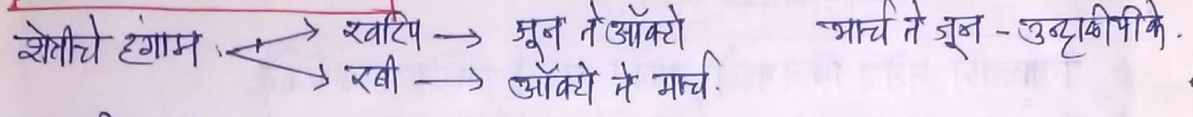 शेतीचे हंगाम. → खरिप → जून ते ऑक्टो मार्च ते जून - उन्हाळीपीके.
→ रबी → ऑक्टो ते मार्च.